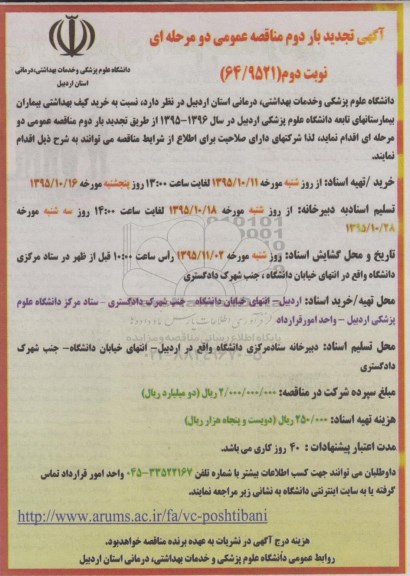 آگهی تجدید بار دوم مناقصه عمومی دو مرحله ای
نوبت دوم(۶۴/۹۵۲۱)
دانشگاه علوم پزشکی وخدمات بهداشتی،درمانی
استان اردبیل
دانشگاه علوم پزشکی وخدمات بهداشتی، درمانی استان اردبیل در نظر دارد، نسبت به خرید کیف بهداشتی بیماران
بیمارستانهای تابعه دانشگاه علوم پزشکی اردبیل در سال ۱۳۹۶-۱۳۹۵ از طریق تجدید بار دوم مناقصه عمومی دو
مرحله ای اقدام نماید، لذا شرکتهای دارای صلاحیت برای اطلاع از شرایط مناقصه می توانند به شرح ذیل اقدام
نمایند.
خرید /تهیه اسناد: از روز شنبه مورخه ۱۳۹۵/۱۰/۱۱ لغایت ساعت ۱۳:۰۰ روز پنجشنبه مورخه ۱۳۹۵/۱۰/۱۶
تسلیم اسنادبه دبیرخانه: از روز شنبه مورخه ۱۳۹۵/۱۰/۱۸ لغایت ساعت ۱۴:۰۰ روز سه شنبه مورخه
۱۳۹۵/۱۰/۲۸
تاریخ و محل گشایش اسناد: روز شنبه مورخه ۱۳۹۵/۱۱/۰۲ رأس ساعت ۱۰:۰۰ قبل از ظهر در ستاد مرکزی
دانشگاه واقع در انتهای خیابان دانشگاه ، جنب شهرک دادگستری
محل تهیه/خرید اسناد: اردبیل - انتهای خیابان دانشگاه - جنب شهرک دادگستری - ستاد مرکز دانشگاه علوم
پزشکی اردبیل - واحد امورقرارداد
محل تسلیم اسناد: دبیرخانه ستادمرکزی دانشگاه واقع در اردبیل- انتهای خیابان دانشگاه- جنب شهرک
دادگستری
مبلغ سپرده شرکت در مناقصه: ۲/۰۰۰/۰۰۰/۰۰۰ ریال (دو میلیارد ریال)
هزینه تهیه اسناد: ۲۵۰/۰۰۰ ریال (دویست و پنجاه هزار ریال)
مدت اعتبار پیشنهادات : ۴۰ روز کاری می باشد.
داوطلبان می توانند جهت کسب اطلاعات بیشتر با شماره تلفن ۳۳۵۲۲۱۶۷-۰۴۵ واحد امور قرارداد تماس
گرفته یا به سایت اینترنتی دانشگاه به نشانی زیر مراجعه نمایند.
http://www.arums.ac.ir/fa/vc-poshtibani
هزینه درج آگهی در نشریات به عهده برنده مناقصه خواهدبود.
روابط عمومی دانشگاه علوم پزشکی و خدمات بهداشتی، درمانی استان اردبیل